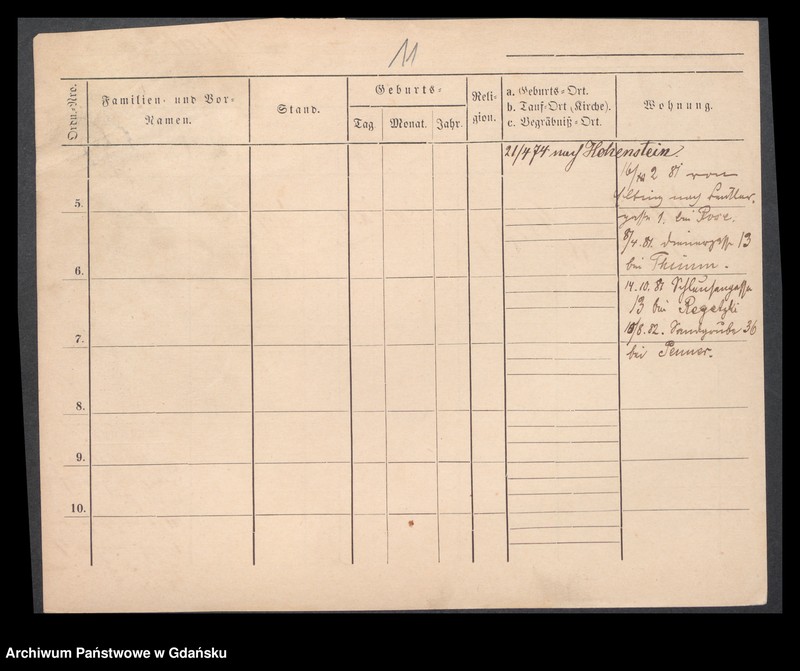 11
Ordn.-Nro.
Familien- und Vor-
Namen.
Stand.
Geburts-
Tag.
Monat.
Jahr.
Reli-
gion.
a. Geburts-Ort.
b. Tauf-Ort (Kirche).
c. Begräbniß-Ort.
Wohnung.
21/4 74 nach Hohenstein.
2 81 von
Elbing nach
gasse 1. bei
/4. 81. Dienergasse 13
bei Thimm.
5.
6.
14.10.81 Schleusengasse
13 bei
/8.82. Sandgrube 36
bei Penner.
7.
8.
9.
10.
Archiwum Państwowe w Gdańsku